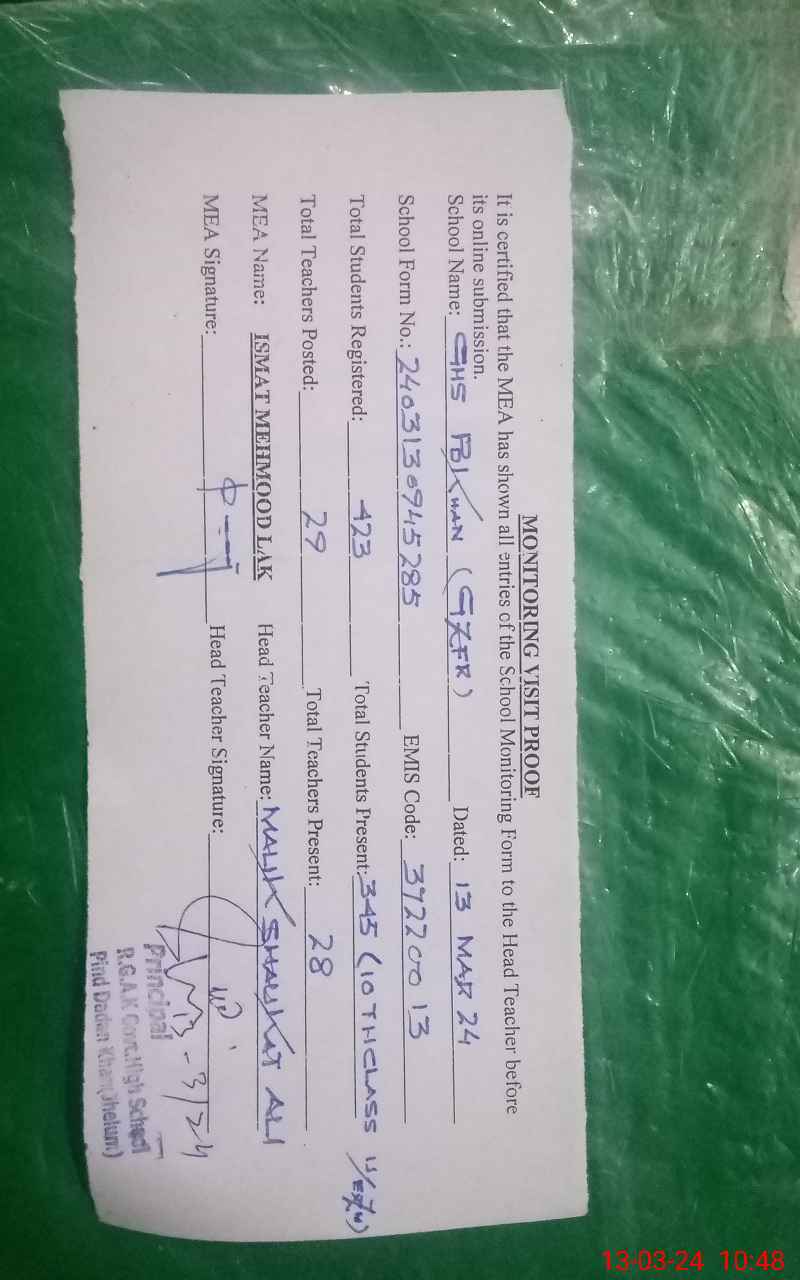 MONITORING VISIT PROOF
It is certified that the MEA has shown all entries of the School Monitoring Form to the Head Teacher before
its online submission.
School Name: GHS PDKHAN Dated: 13 MAR 24
School Form No.: 2403130945285 EMIS Code: 37220013
Total Students Registered: 423 Total Students Present: 345 (10TH CLASS
Total Teachers Posted: 29 Total Teachers Present: 28
MEA Name: ISMAT MEHMOOD LAK Head Teacher Name: MALIK SHAUKAT ALI
MEA Signature: Head Teacher Signature:
13-3/24
Principal
R.G.A.K Govt.High School
Pind Dadan Khan(Jhelum)
13-03-24 10:48